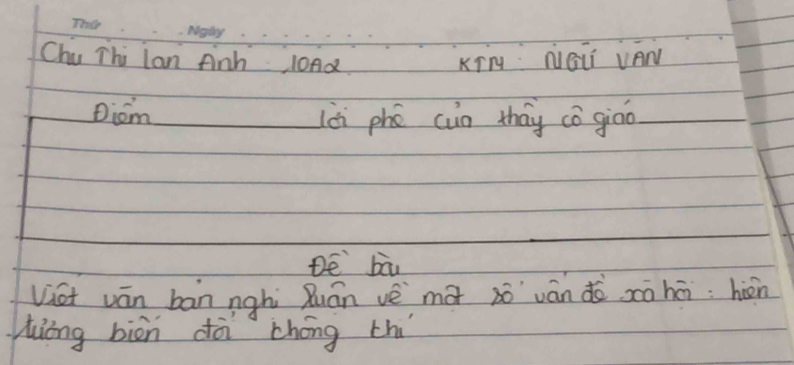 Thứ . . . Ngày . . . . . . .
Chu Thi Lan Anh 10A2 KTTX : NGỮ VĂN
Điểm lời phê của thầy cô giáo
Đề bài
Viết văn bản nghị luận về một số vấn đề xã hội : hiện
tượng biến đổi không khí